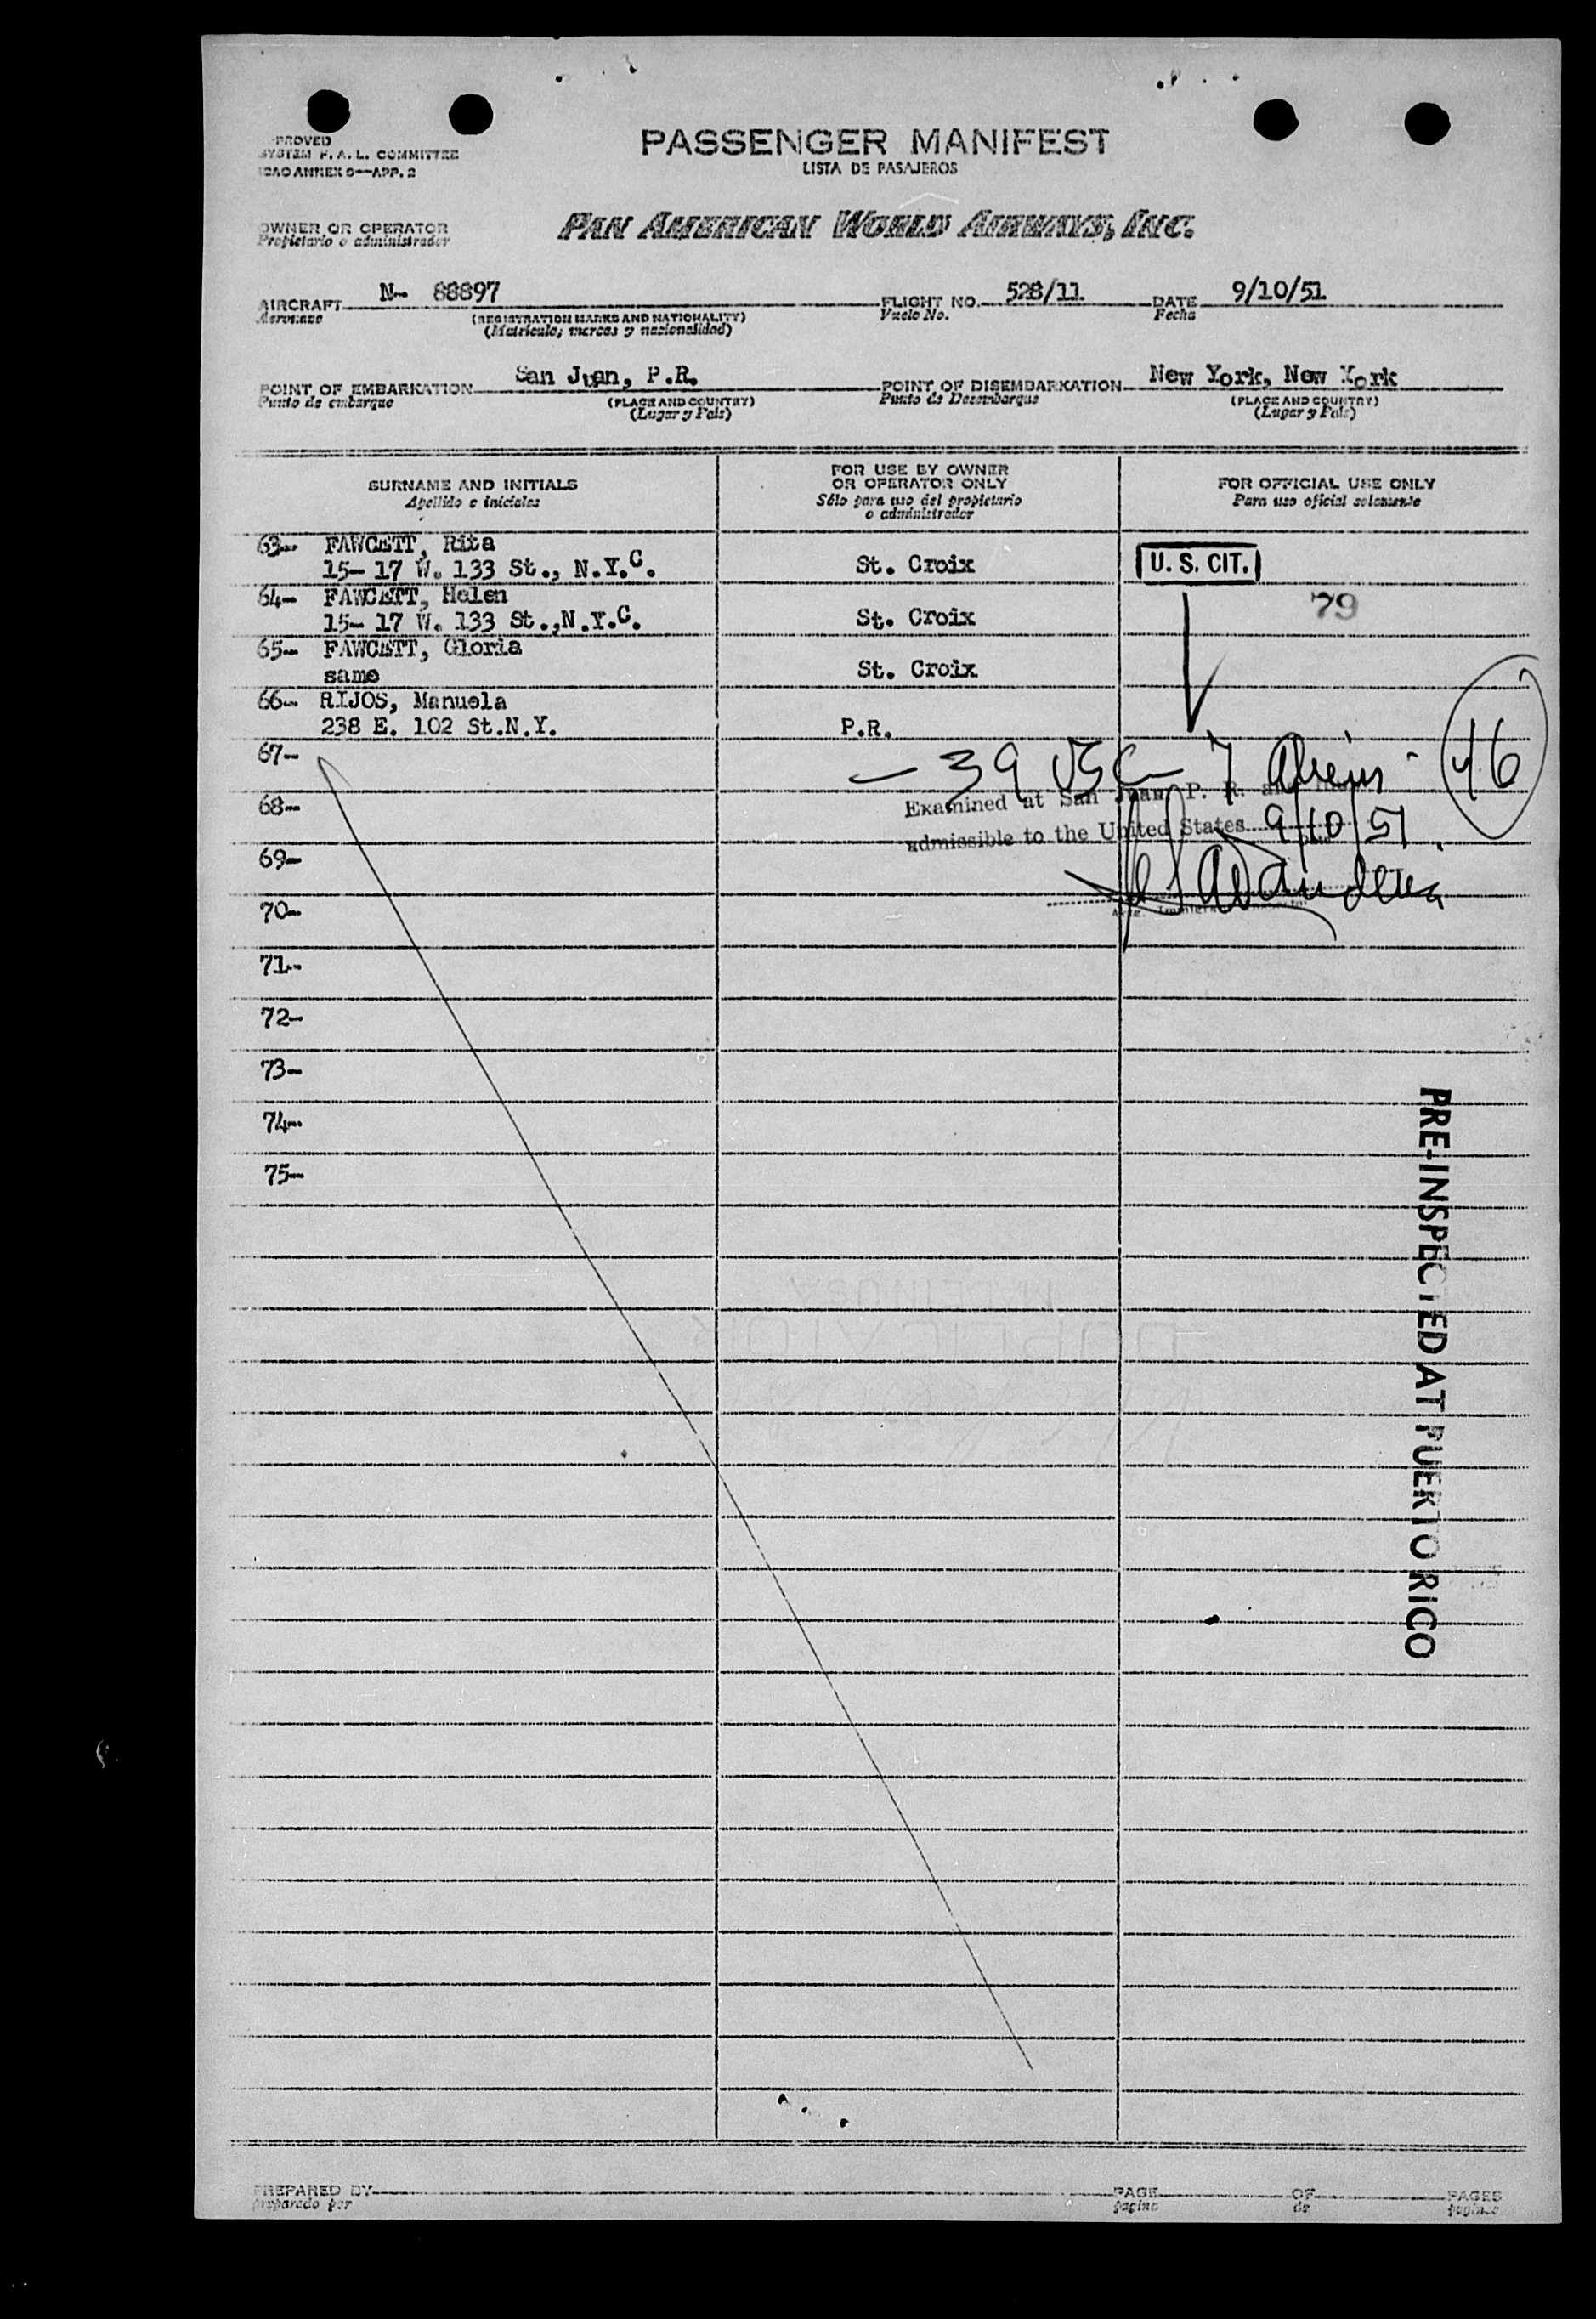 PROVED
SYSTEM F.A.L. COMMITTEE
ICAO ANNEX 9—APP. 2
PASSENGER MANIFEST
LISTA DE PASAJEROS
OWNER OR OPERATOR
Propietario o administrador
PAN AMERICAN WORLD AIRWAYS, INC.
AIRCRAFT N- 88897 FLIGHT NO. 528/11 DATE 9/10/51
Aeronave (REGISTRATION MARKS AND NATIONALITY) Vuelo No. Fecha
(Matrícula; marcas y nacionalidad)
POINT OF EMBARKATION San Juan, P.R. POINT OF DISEMBARKATION New York, New York
Punto de embarque (PLACE AND COUNTRY) Punto de Desembarque (PLACE AND COUNTRY)
(Lugar y País) (Lugar y País)
SURNAME AND INITIALS
Apellido e iniciales
FOR USE BY OWNER
OR OPERATOR ONLY
Sólo para uso del propietario
o administrador
FOR OFFICIAL USE ONLY
Para uso oficial solamente
63- FAWCETT, Rita
15- 17 W. 133 St., N.Y.C. St. Croix U. S. CIT.
64- FAWCETT, Helen 79
15- 17 W. 133 St.,N.Y.C. St. Croix
65- FAWCETT, Gloria
same St. Croix
66- RIJOS, Manuela
238 E. 102 St.N.Y. P.R.
67- — 39 USC 7 Aliens 46
68- Examined at San Juan P. R. and
admissible to the United States 9/10/51
69-
70-
71-
72-
73-
74-
75-
PRE-INSPECTED AT PUERTO RICO
PREPARED BY PAGE OF PAGES
preparado por página de páginas